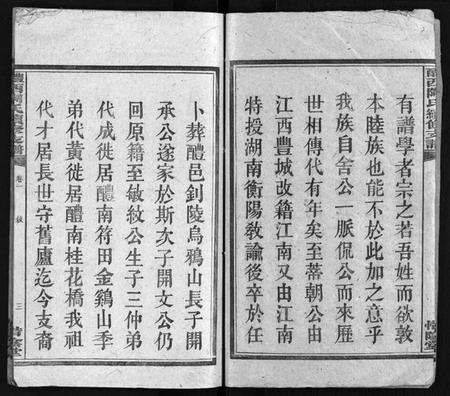 醴西陶氏續修支譜
有譜學者宗之若吾姓而欲敦
本睦族也能不於此加之意乎
我族自舍公一脈侃公而來歷
世相傳代有年矣至蒂朝公由
江西豐城改籍江南又由江南
特授湖南衡陽教諭後卒於任
卜葬醴邑釗陵烏鴉山長子開
承公遂家於斯次子開文公仍
回原籍至敏紋公生子三仲弟
代成徙居醴南符田金鷄山季
弟代黃徙居醴南桂花橋我祖
代才居長世守舊廬迄今支裔
醴西陶氏續修支譜
卷一
三